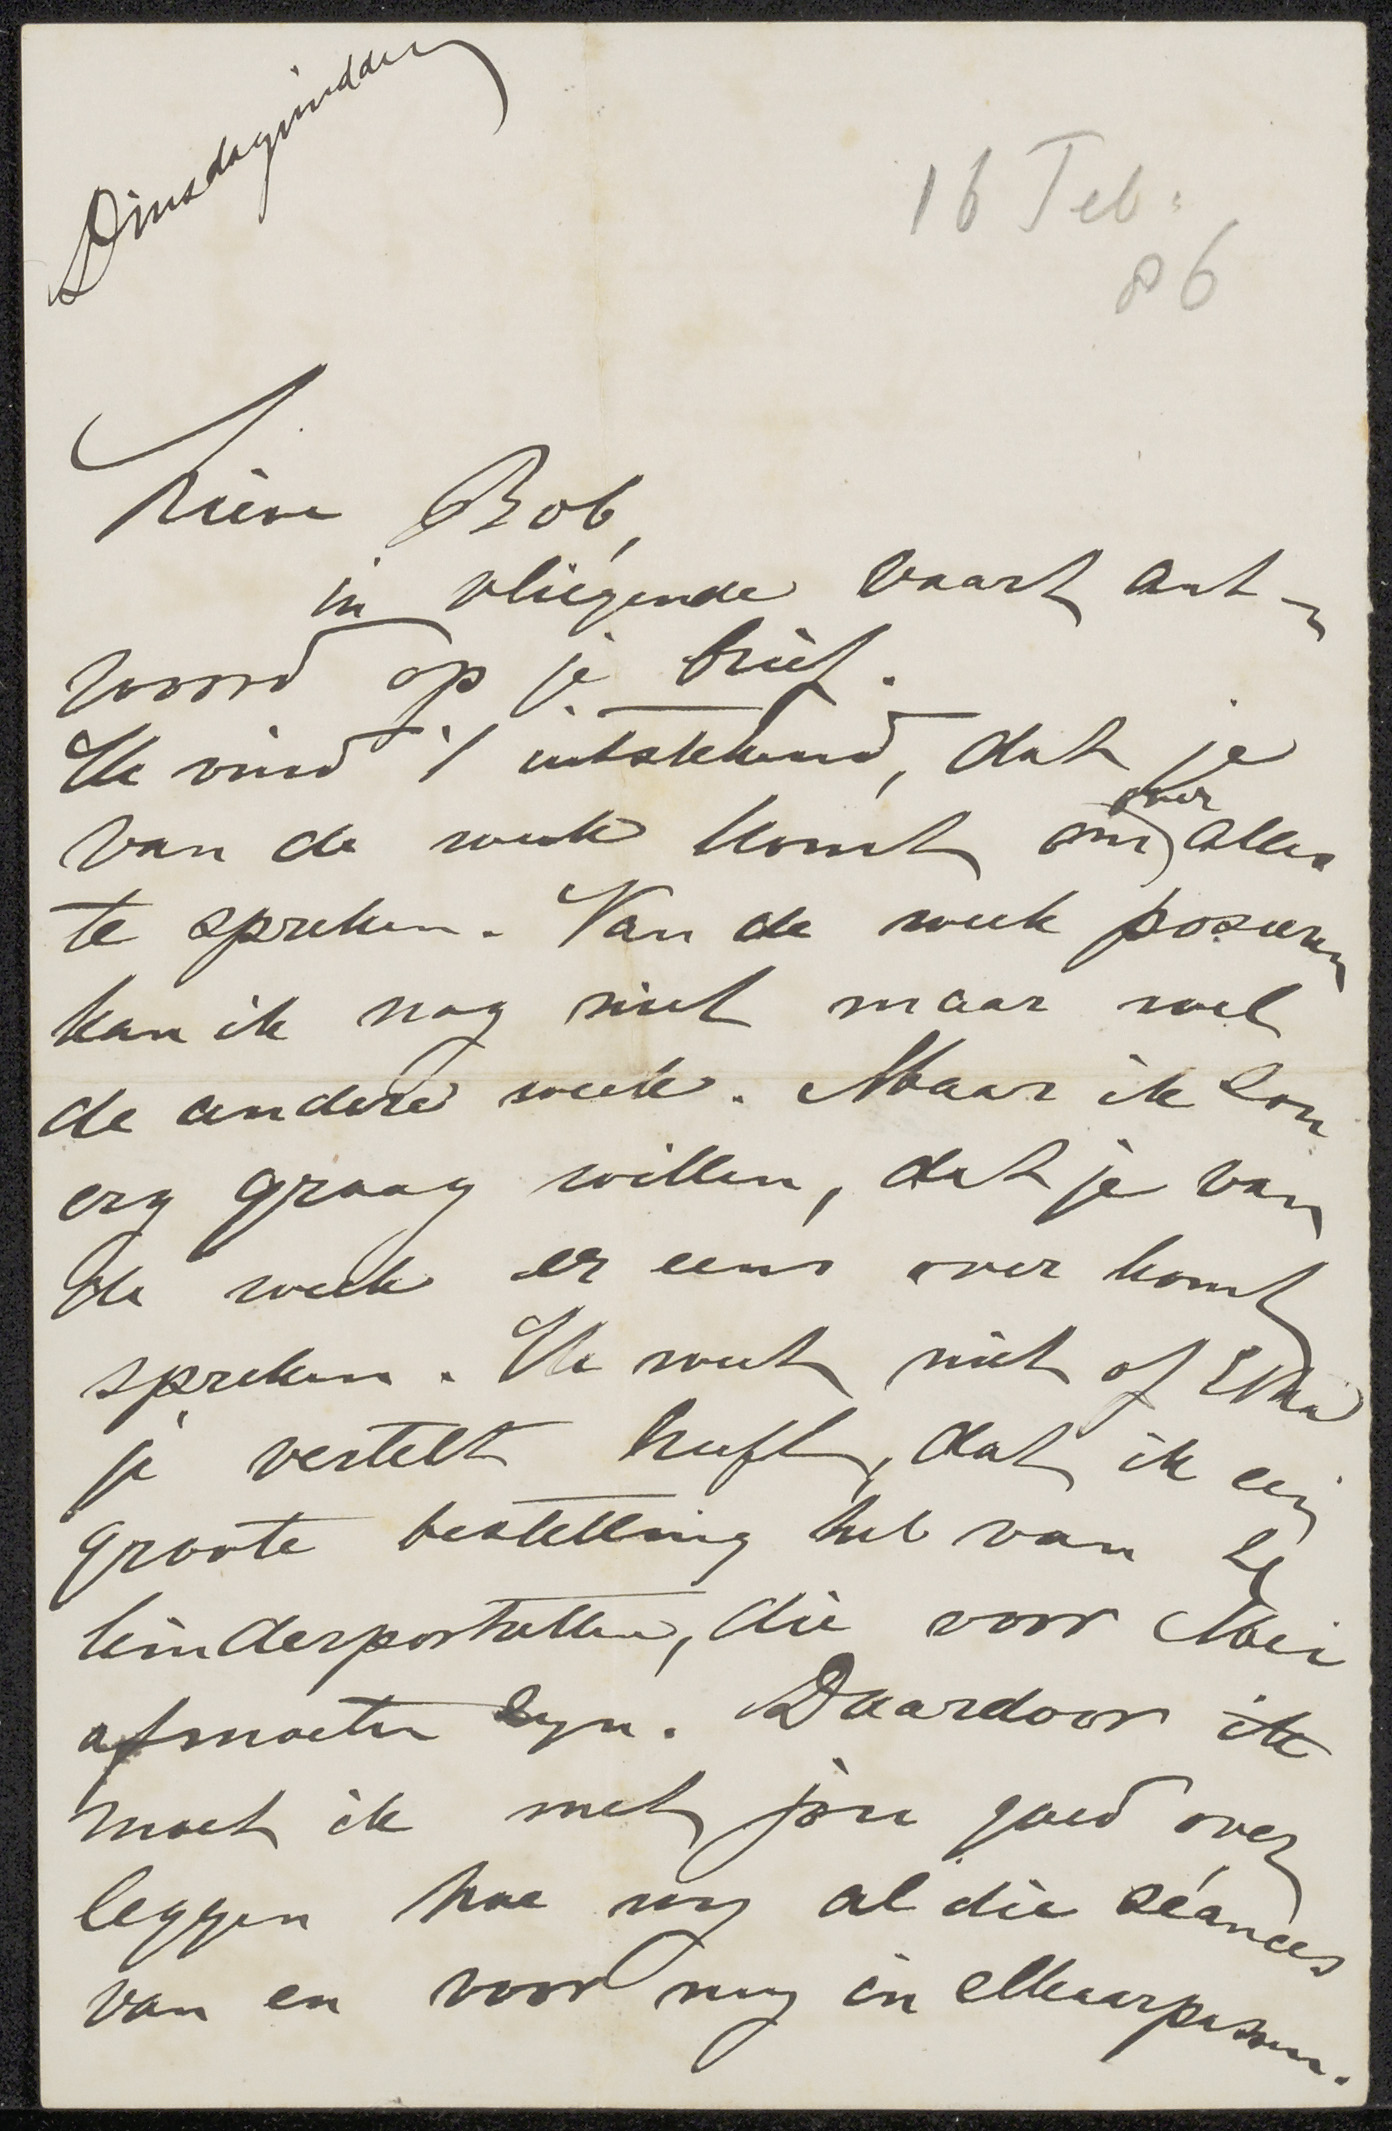 Dinsdagmiddag
16 Feb.
86
Lieve Bob,
in vliegende vaart ant-
woord op je brief.
Ik vind 't uitstekend, dat je
van de week komt om over alles
te spreken. Van de week poseeren
kan ik nog niet maar wel
de andere week. Maar ik zou
erg graag willen, dat je van
de week er eens over komt
spreken. Ik weet niet of
je vertelt heeft, dat ik een
groote bestelling heb van
kinderportretten, die voor Mei
af moeten zyn. Daardoor ik
moet ik met jou goed over
leggen hoe wy al die séances
van en voor my in elkaar passen.